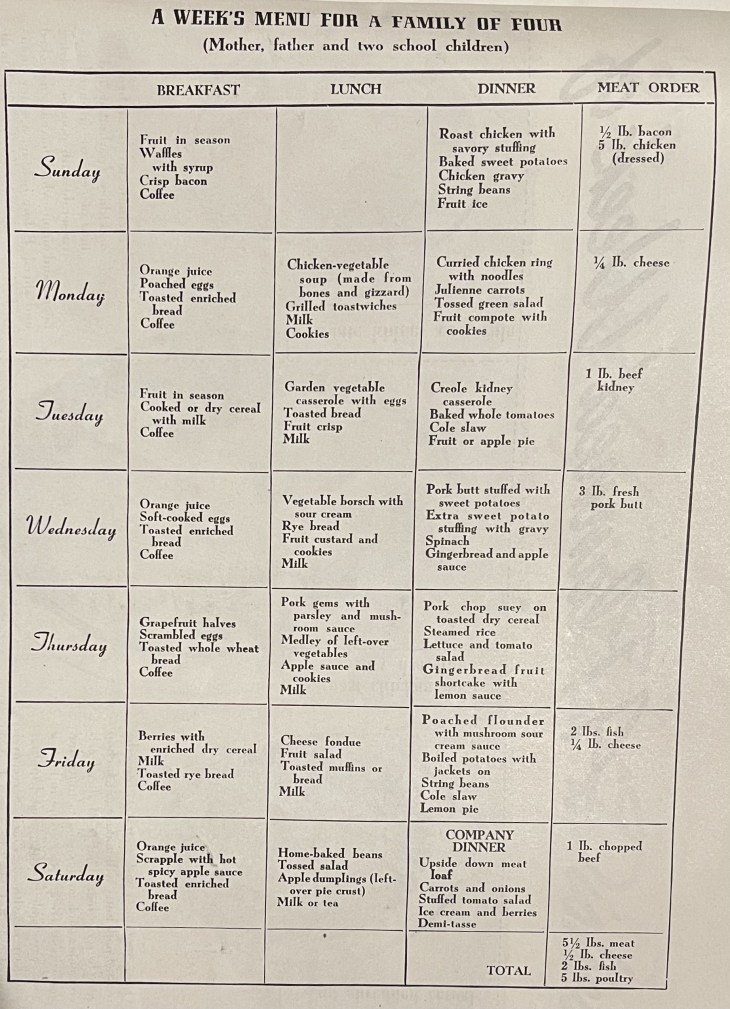 A WEEK'S MENU FOR A FAMILY OF FOUR
(Mother, father and two school children)
BREAKFAST
LUNCH
DINNER
MEAT ORDER
Sunday
Fruit in season
Waffles
with syrup
Crisp bacon
Coffee
Roast chicken with
savory stuffing
Baked sweet potatoes
Chicken gravy
String beans
Fruit ice
½ lb. bacon
5 lb. chicken
(dressed)
Monday
Orange juice
Poached eggs
Toasted enriched
bread
Coffee
Chicken-vegetable
soup (made from
bones and gizzard)
Grilled toastwiches
Milk
Cookies
Curried chicken ring
with noodles
Julienne carrots
Tossed green salad
Fruit compote with
cookies
¼ lb. cheese
Tuesday
Fruit in season
Cooked or dry cereal
with milk
Coffee
Garden vegetable
casserole with eggs
Toasted bread
Fruit crisp
Milk
Creole kidney
casserole
Baked whole tomatoes
Cole slaw
Fruit or apple pie
1 lb. beef
kidney
Wednesday
Orange juice
Soft-cooked eggs
Toasted enriched
bread
Coffee
Vegetable borsch with
sour cream
Rye bread
Fruit custard and
cookies
Milk
Pork butt stuffed with
sweet potatoes
Extra sweet potato
stuffing with gravy
Spinach
Gingerbread and apple
sauce
3 lb. fresh
pork butt
Thursday
Grapefruit halves
Scrambled eggs
Toasted whole wheat
bread
Coffee
Pork gems with
parsley and mush-
room sauce
Medley of left-over
vegetables
Apple sauce and
cookies
Milk
Pork chop suey on
toasted dry cereal
Steamed rice
Lettuce and tomato
salad
Gingerbread fruit
shortcake with
lemon sauce
Friday
Berries with
enriched dry cereal
Milk
Toasted rye bread
Coffee
Cheese fondue
Fruit salad
Toasted muffins or
bread
Milk
Poached flounder
with mushroom sour
cream sauce
Boiled potatoes with
jackets on
String beans
Cole slaw
Lemon pie
2 lbs. fish
¼ lb. cheese
Saturday
Orange juice
Scrapple with hot
spicy apple sauce
Toasted enriched
bread
Coffee
Home-baked beans
Tossed salad
Apple dumplings (left-
over pie crust)
Milk or tea
COMPANY
DINNER
Upside down meat
loaf
Carrots and onions
Stuffed tomato salad
Ice cream and berries
Demi-tasse
1 lb. chopped
beef
TOTAL
5½ lbs. meat
½ lb. cheese
2 lbs. fish
5 lbs. poultry